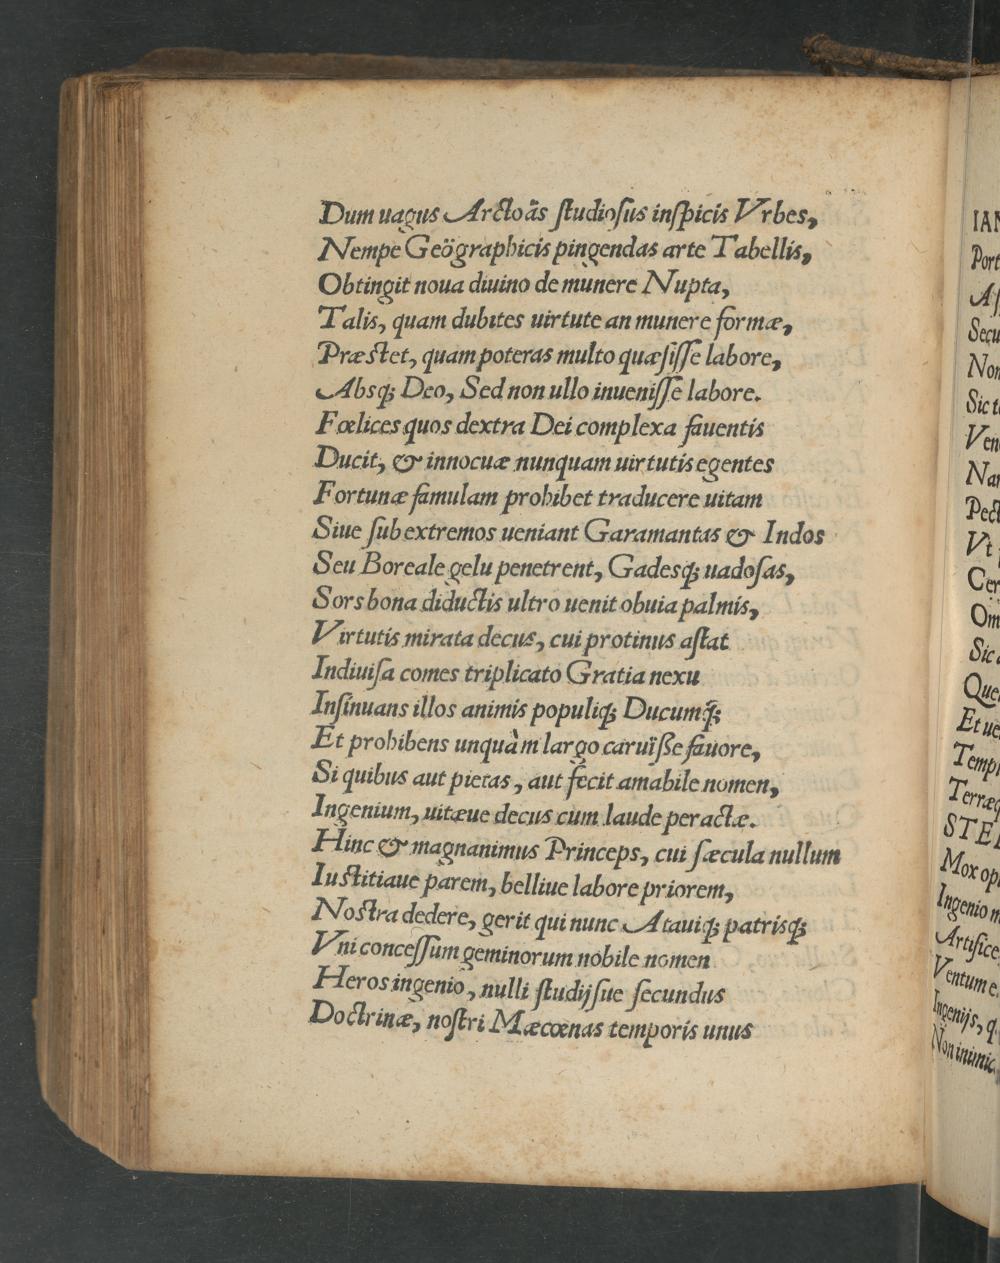 Dum uagus Arctoãs studiosus inspicis Vrbes,
Nempe Geögraphicis pingendas arte Tabellis,
Obtingit noua diuino de munere Nupta,
Talis, quam dubites uirtute an munere formæ,
Præstet, quam poteras multo quæsisse labore,
Absq; Deo, Sed non ullo inuenisse labore.
Fœlices quos dextra Dei complexa fauentis
Ducit, & innocuæ nunquam uirtutis egentes
Fortunæ famulam prohibet traducere uitam
Siue sub extremos ueniant Garamantas & Indos
Seu Boreale gelu penetrent, Gadesq; uadosas,
Sors bona diductis ultro uenit obuia palmis,
Virtutis mirata decus, cui protinus astat
Indiuisa comes triplicato Gratia nexu
Insinuans illos animis populiq; Ducumq́;
Et prohibens unquàm largo caruïsse fauore,
Si quibus aut pietas, aut fecit amabile nomen,
Ingenium, uitæue decus cum laude peractæ.
Hinc & magnanimus Princeps, cui sæcula nullum
Iustitiaue parem, belliue labore priorem,
Nostra dedere, gerit qui nunc Atauiq; patrisq;
Vni concessum geminorum nobile nomen
Heros ingenio, nulli studijsue secundus
Doctrinæ, nostri Mæcœnas temporis unus
IAN
Port
Secu
Non
Sic t
Ven
Nar
Pect
Vt
Cer
Om
Sic
Que
Et ue
Templ
Terræq
STEL
Mox op
Ingenio m
Artifice
Ventum e
Ingenijs, q
Non inimic